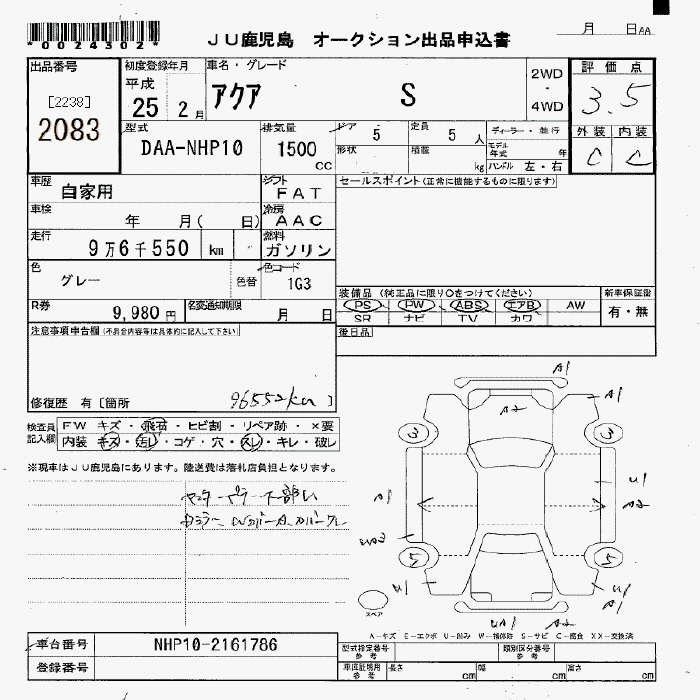 *0024302*
月 日AA
JU鹿児島 オークション出品申込書
出品番号
[2238]
2083
初度登録年月
平成
25 2月
車名・グレード
アクア S
2WD
・
4WD
評価点
3.5
外装 内装
C C
型式
DAA-NHP10
排気量
1500
CC
ドア 5
定員 5 人
形状
積載 kg
モデル年式 年
ハンドル 左・右
車歴
自家用
シフト
FAT
セールスポイント(正常に機能するものに限ります)
車検
年 月( 日)
冷房
AAC
走行
9万6千550 km
燃料
ガソリン
色
グレー
色替
色コード
1G3
装備品 (純正品に限り○をつけてください)
新車保証書
PS PW ABS エアB AW
SR ナビ TV カワ
有・無
R券
9,980 円
名変通知期限
月 日
注意事項申告欄(不具合内容等は具体的に記入して下さい)
後日品
修復歴 有[箇所 96552km ]
検査員記入欄
FW キズ・飛石・ヒビ割・リペア跡・×要
内装 キズ・汚レ・コゲ・穴・スレ・キレ・破レ
※現車はJU鹿児島にあります。陸送費は落札店負担となります。
A1
A2
A1
3 3
A1
U1
A2
5 5
U1
U1
A1
A2
スペア
A-キズ E-エクボ U-凹み W-補修跡 S-サビ C-腐食 XX-交換済
車台番号
NHP10-2161786
登録番号
型式指定番号
参考
類別区分番号
参考
車庫証明用
参考
長さ cm
幅 cm
高さ cm